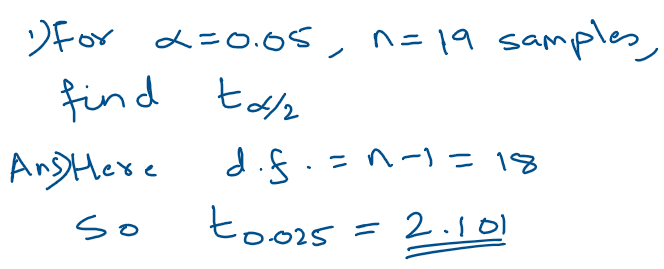 1) For α=0.05, n=19 samples,
find tα/2
Ans) Here d.f. = n-1 = 18
So t0.025 = 2.101